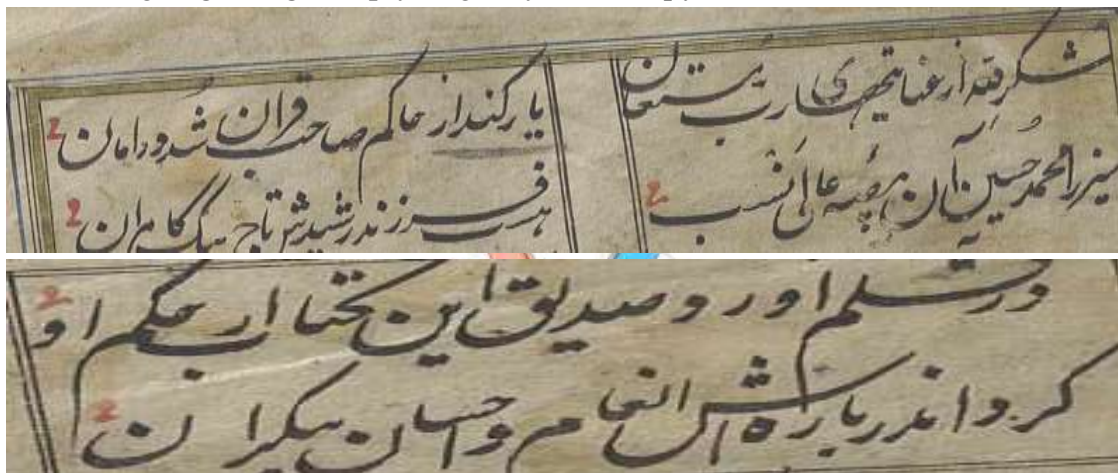 شکر لله از عنایتهای رب مستعان یارکند از حاکم صاحب قران شد در امان 2
میرزا محمد حسین آن عالی نسب 2 هست فرزند رشیدش تاج بیک کامران 2
در قلم اورد صدیق این کتاب از حکم او 2
کرد اندر باره اش انعام و احسان بیکران 2